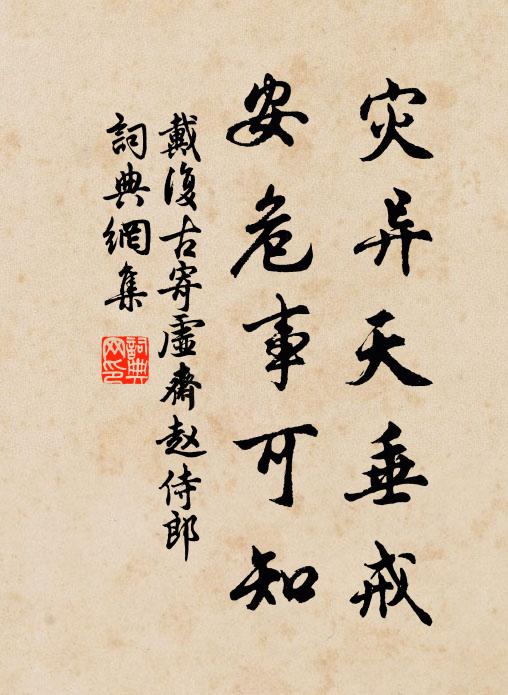 灾异天垂戒
安危事可知
戴復古寄虛齋赵侍郎
詞典網集
詞典網印